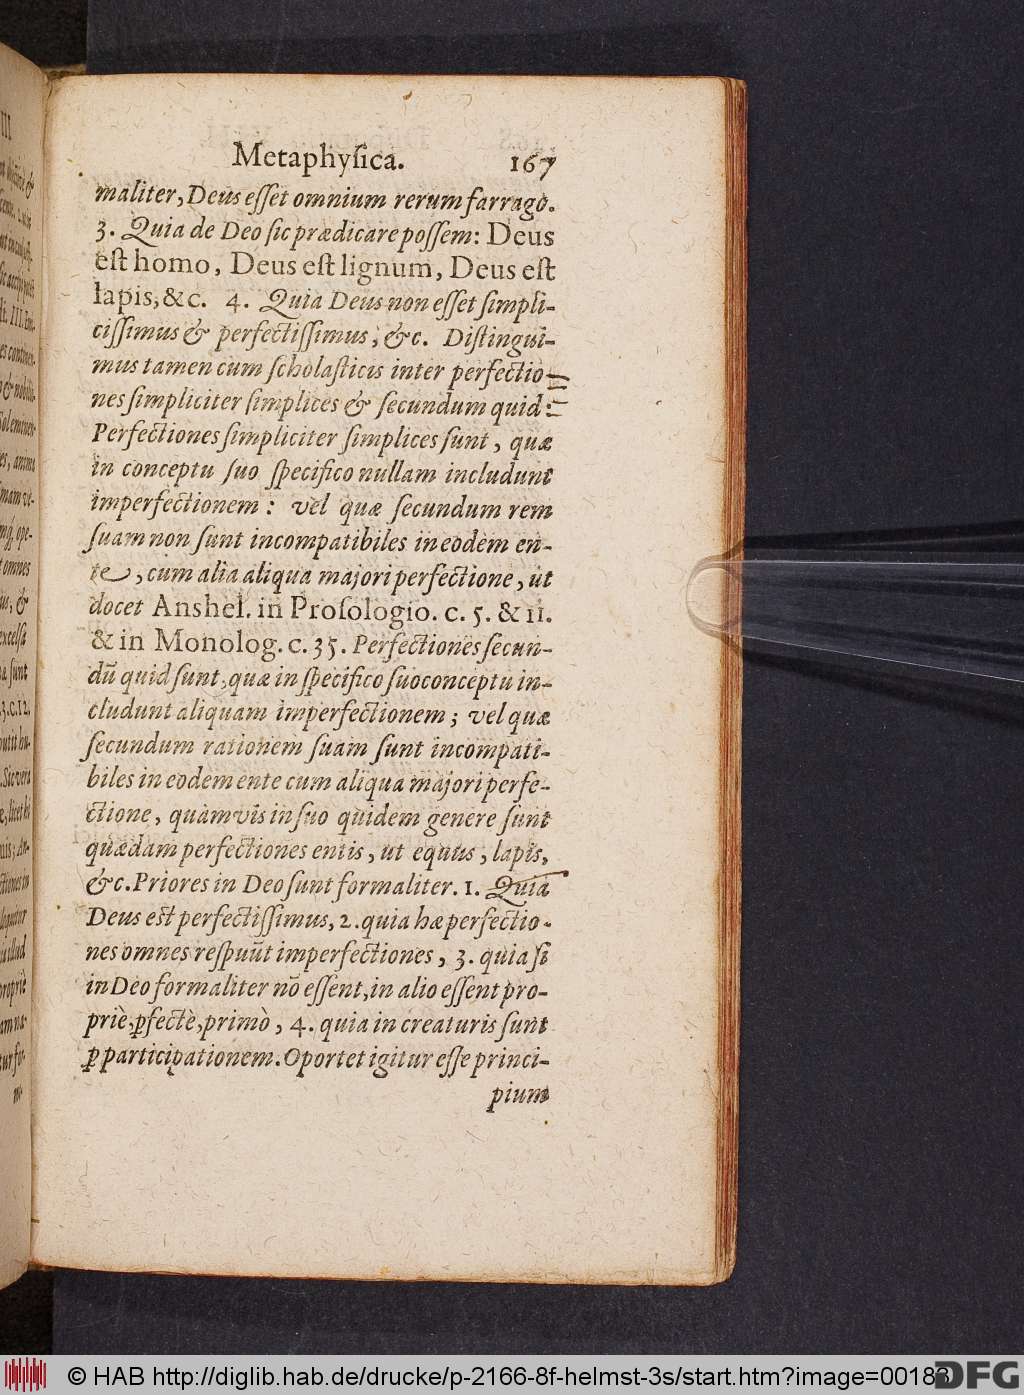 Metaphyſica. 167
maliter, Deus eſſet omnium rerum farrago.
3. Quia de Deo ſic prædicare poſſem: Deus
eſt homo, Deus eſt lignum, Deus eſt
lapis, &c. 4. Quia Deus non eſſet ſimpli-
ciſſimus & perfectiſſimus, &c. Diſtingui-
mus tamen cum ſcholaſticis inter perfectio-
nes ſimpliciter ſimplices & ſecundum quid:
Perfectiones ſimpliciter ſimplices ſunt, quæ
in conceptu ſuo ſpecifico nullam includunt
imperfectionem: vel quæ ſecundum rem
ſuam non ſunt incompatibiles in eodem en-
te, cum alia aliqua majori perfectione, ut
docet Anshel. in Proſologio. c. 5. & 11.
& in Monolog. c. 35. Perfectiones ſecun-
dũ quid ſunt, quæ in ſpecifico ſuo conceptu in-
cludunt aliquam imperfectionem; vel quæ
ſecundum rationem ſuam ſunt incompati-
biles in eodem ente cum aliqua majori perfe-
ctione, quàmvis in ſuo quidem genere ſunt
quædam perfectiones entis, ut equus, lapis,
&c. Priores in Deo ſunt formaliter. 1. Quia
Deus eſt perfectiſſimus, 2. quia hæ perfectio-
nes omnes reſpuũt imperfectiones, 3. quia ſi
in Deo formaliter nõ eſſent, in alio eſſent pro-
priè, ꝑfectè, primò, 4. quia in creaturis ſunt
ꝑ participationem. Oportet igitur eſſe princi-
pium
© HAB http://diglib.hab.de/drucke/p-2166-8f-helmst-3s/start.htm?image=00183
DFG